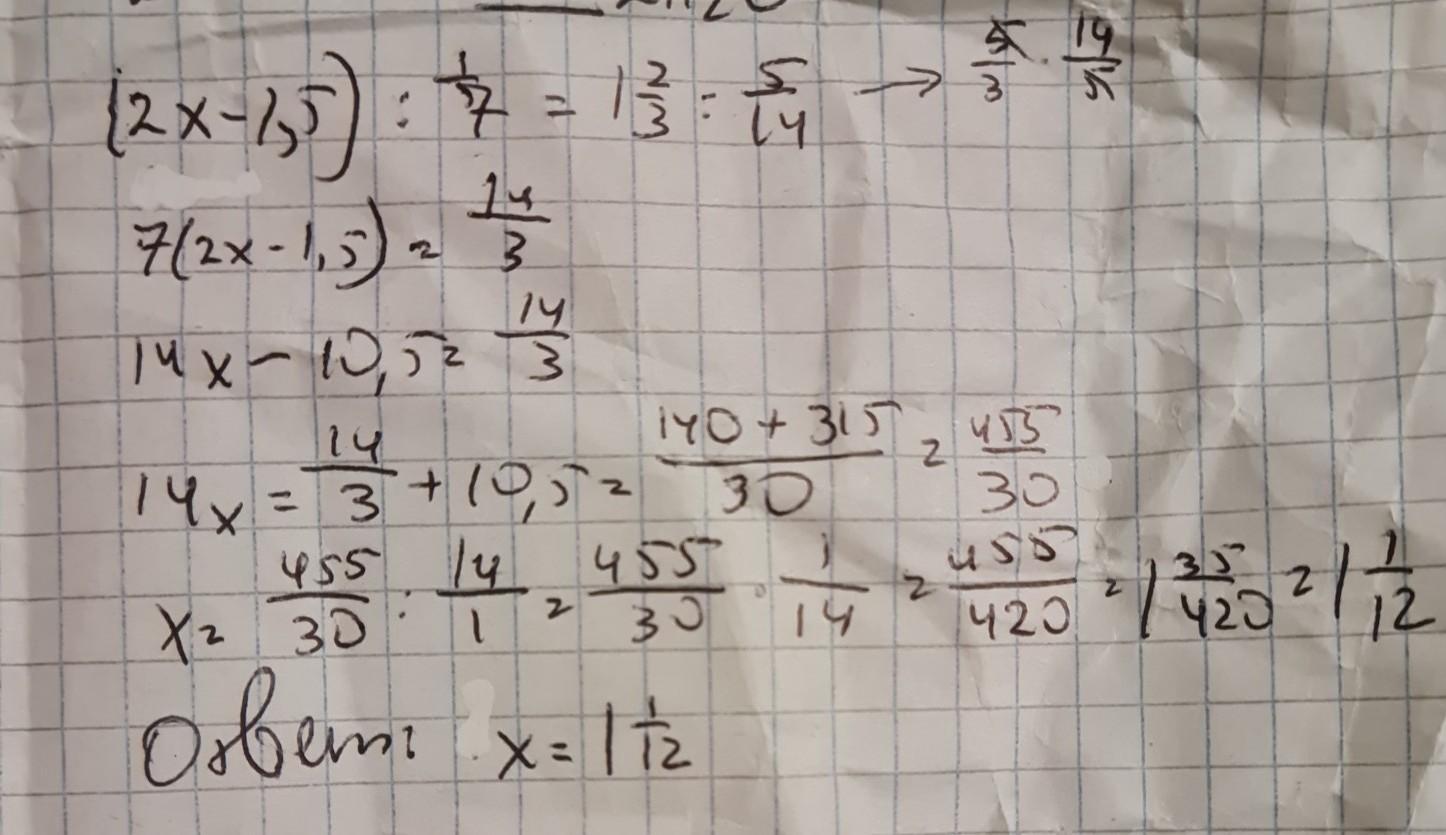 (2x-1,5) : 1/7 = 1 2/3 : 5/14 → 5/3 · 14/5
7(2x-1,5) = 14/3
14x - 10,5 = 14/3
14x = 14/3 + 10,5 = (140+315)/30 = 455/30
x = 455/30 : 14/1 = 455/30 · 1/14 = 455/420 = 1 35/420 = 1 1/12
Ответ: x = 1 1/12